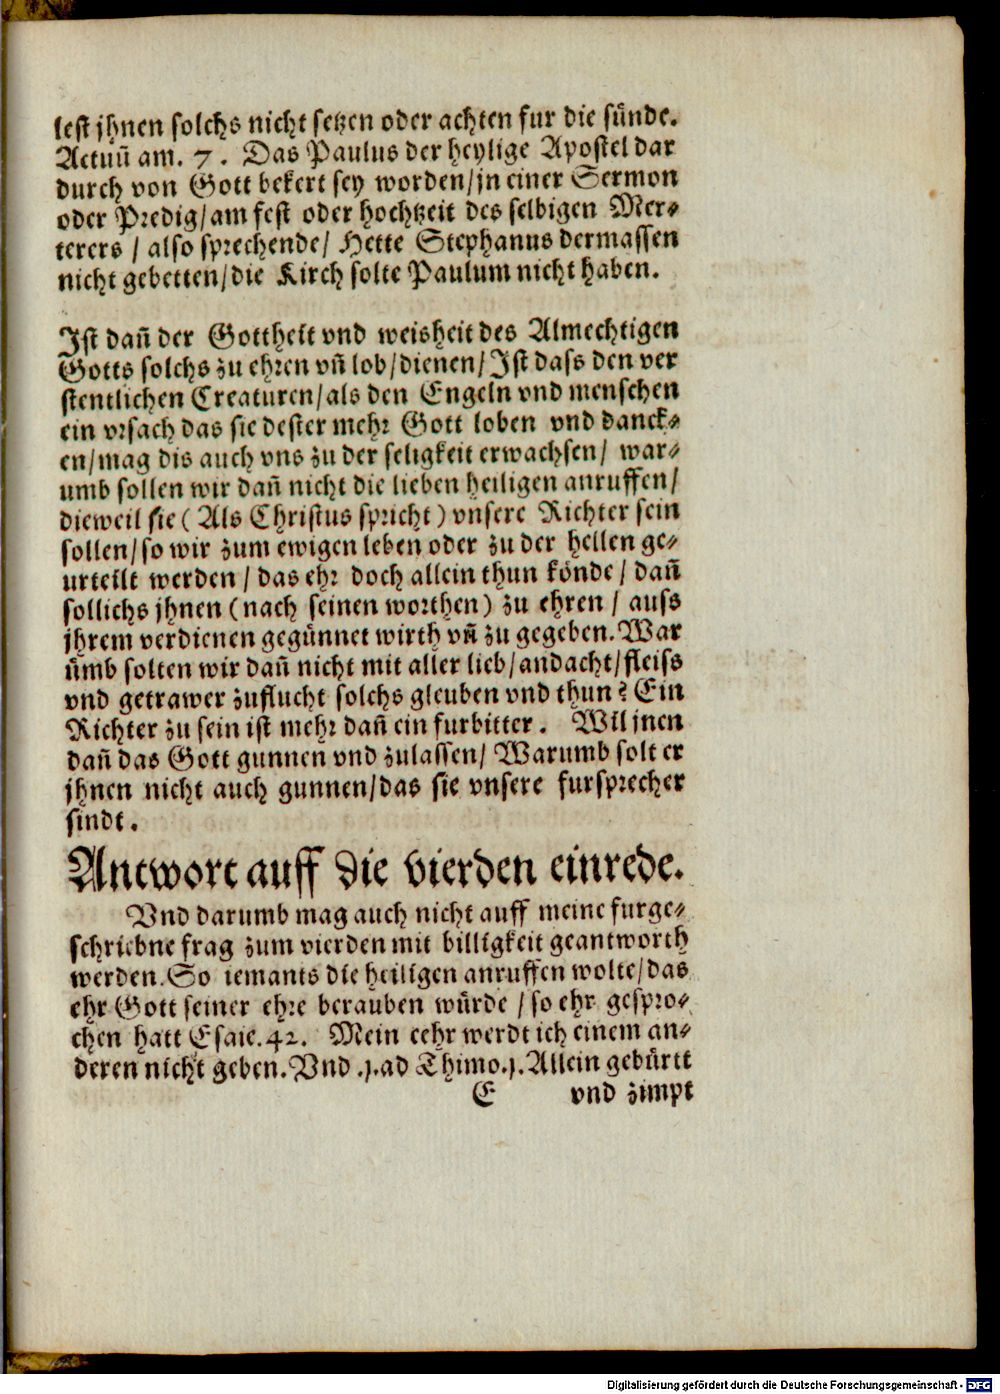 lest jhnen solchs nicht setzen oder achten fur die sünde.
Actuũ am. 7. Das Paulus der heylige Apostel dar
durch von Gott bekert sey worden/jn einer Sermon
oder Predig/am fest oder hochtzeit des selbigen Mer⸗
terers / also sprechende/ Hette Stephanus dermassen
nicht gebetten/die Kirch solte Paulum nicht haben.
Ist dañ der Gottheit vnd weisheit des Almechtigen
Gotts solchs zu ehren vñ lob/dienen/Ist dass den ver
stentlichen Creaturen/als den Engeln vnd menschen
ein vrsach das sie dester mehr Gott loben vnd danck⸗
en/mag dis auch vns zu der seligkeit erwachsen/ war⸗
umb sollen wir dañ nicht die lieben heiligen anruffen/
dieweil sie (Als Christus spricht) vnsere Richter sein
sollen/so wir zum ewigen leben oder zu der hellen ge⸗
urteilt werden / das ehr doch allein thun könde / dañ
sollichs jhnen (nach seinen worthen) zu ehren / auss
jhrem verdienen gegünnet wirth vñ zu gegeben. War
ümb solten wir dañ nicht mit aller lieb/andacht/fleiss
vnd getrawer zuflucht solchs gleuben vnd thun? Ein
Richter zu sein ist mehr dañ ein furbitter. Wil jnen
dañ das Gott gunnen vnd zulassen/ Warumb solt er
jhnen nicht auch gunnen/das sie vnsere fursprecher
sindt.
Antwort auff die vierden einrede.
Vnd darumb mag auch nicht auff meine furge⸗
schriebne frag zum vierden mit billigkeit geantworth
werden. So iemants die heiligen anruffen wolte/das
ehr Gott seiner ehre berauben würde / so ehr gespro⸗
chen hatt Esaie. 42. Mein eehr werdt ich einem an⸗
deren nicht geben. Vnd .j. ad Thimo. j. Allein gebürtt
E vnd zimpt
Digitalisierung gefördert durch die Deutsche Forschungsgemeinschaft - DFG